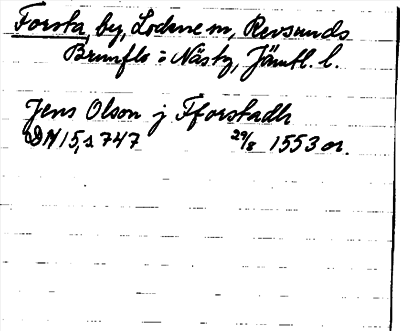 Forsta by, Lockne sn, Revsunds
Brunflo o Näs tg, Jämtl. l.
Jens Olson j Fforstadh
DN 15, s 747 29/8 1553 or.